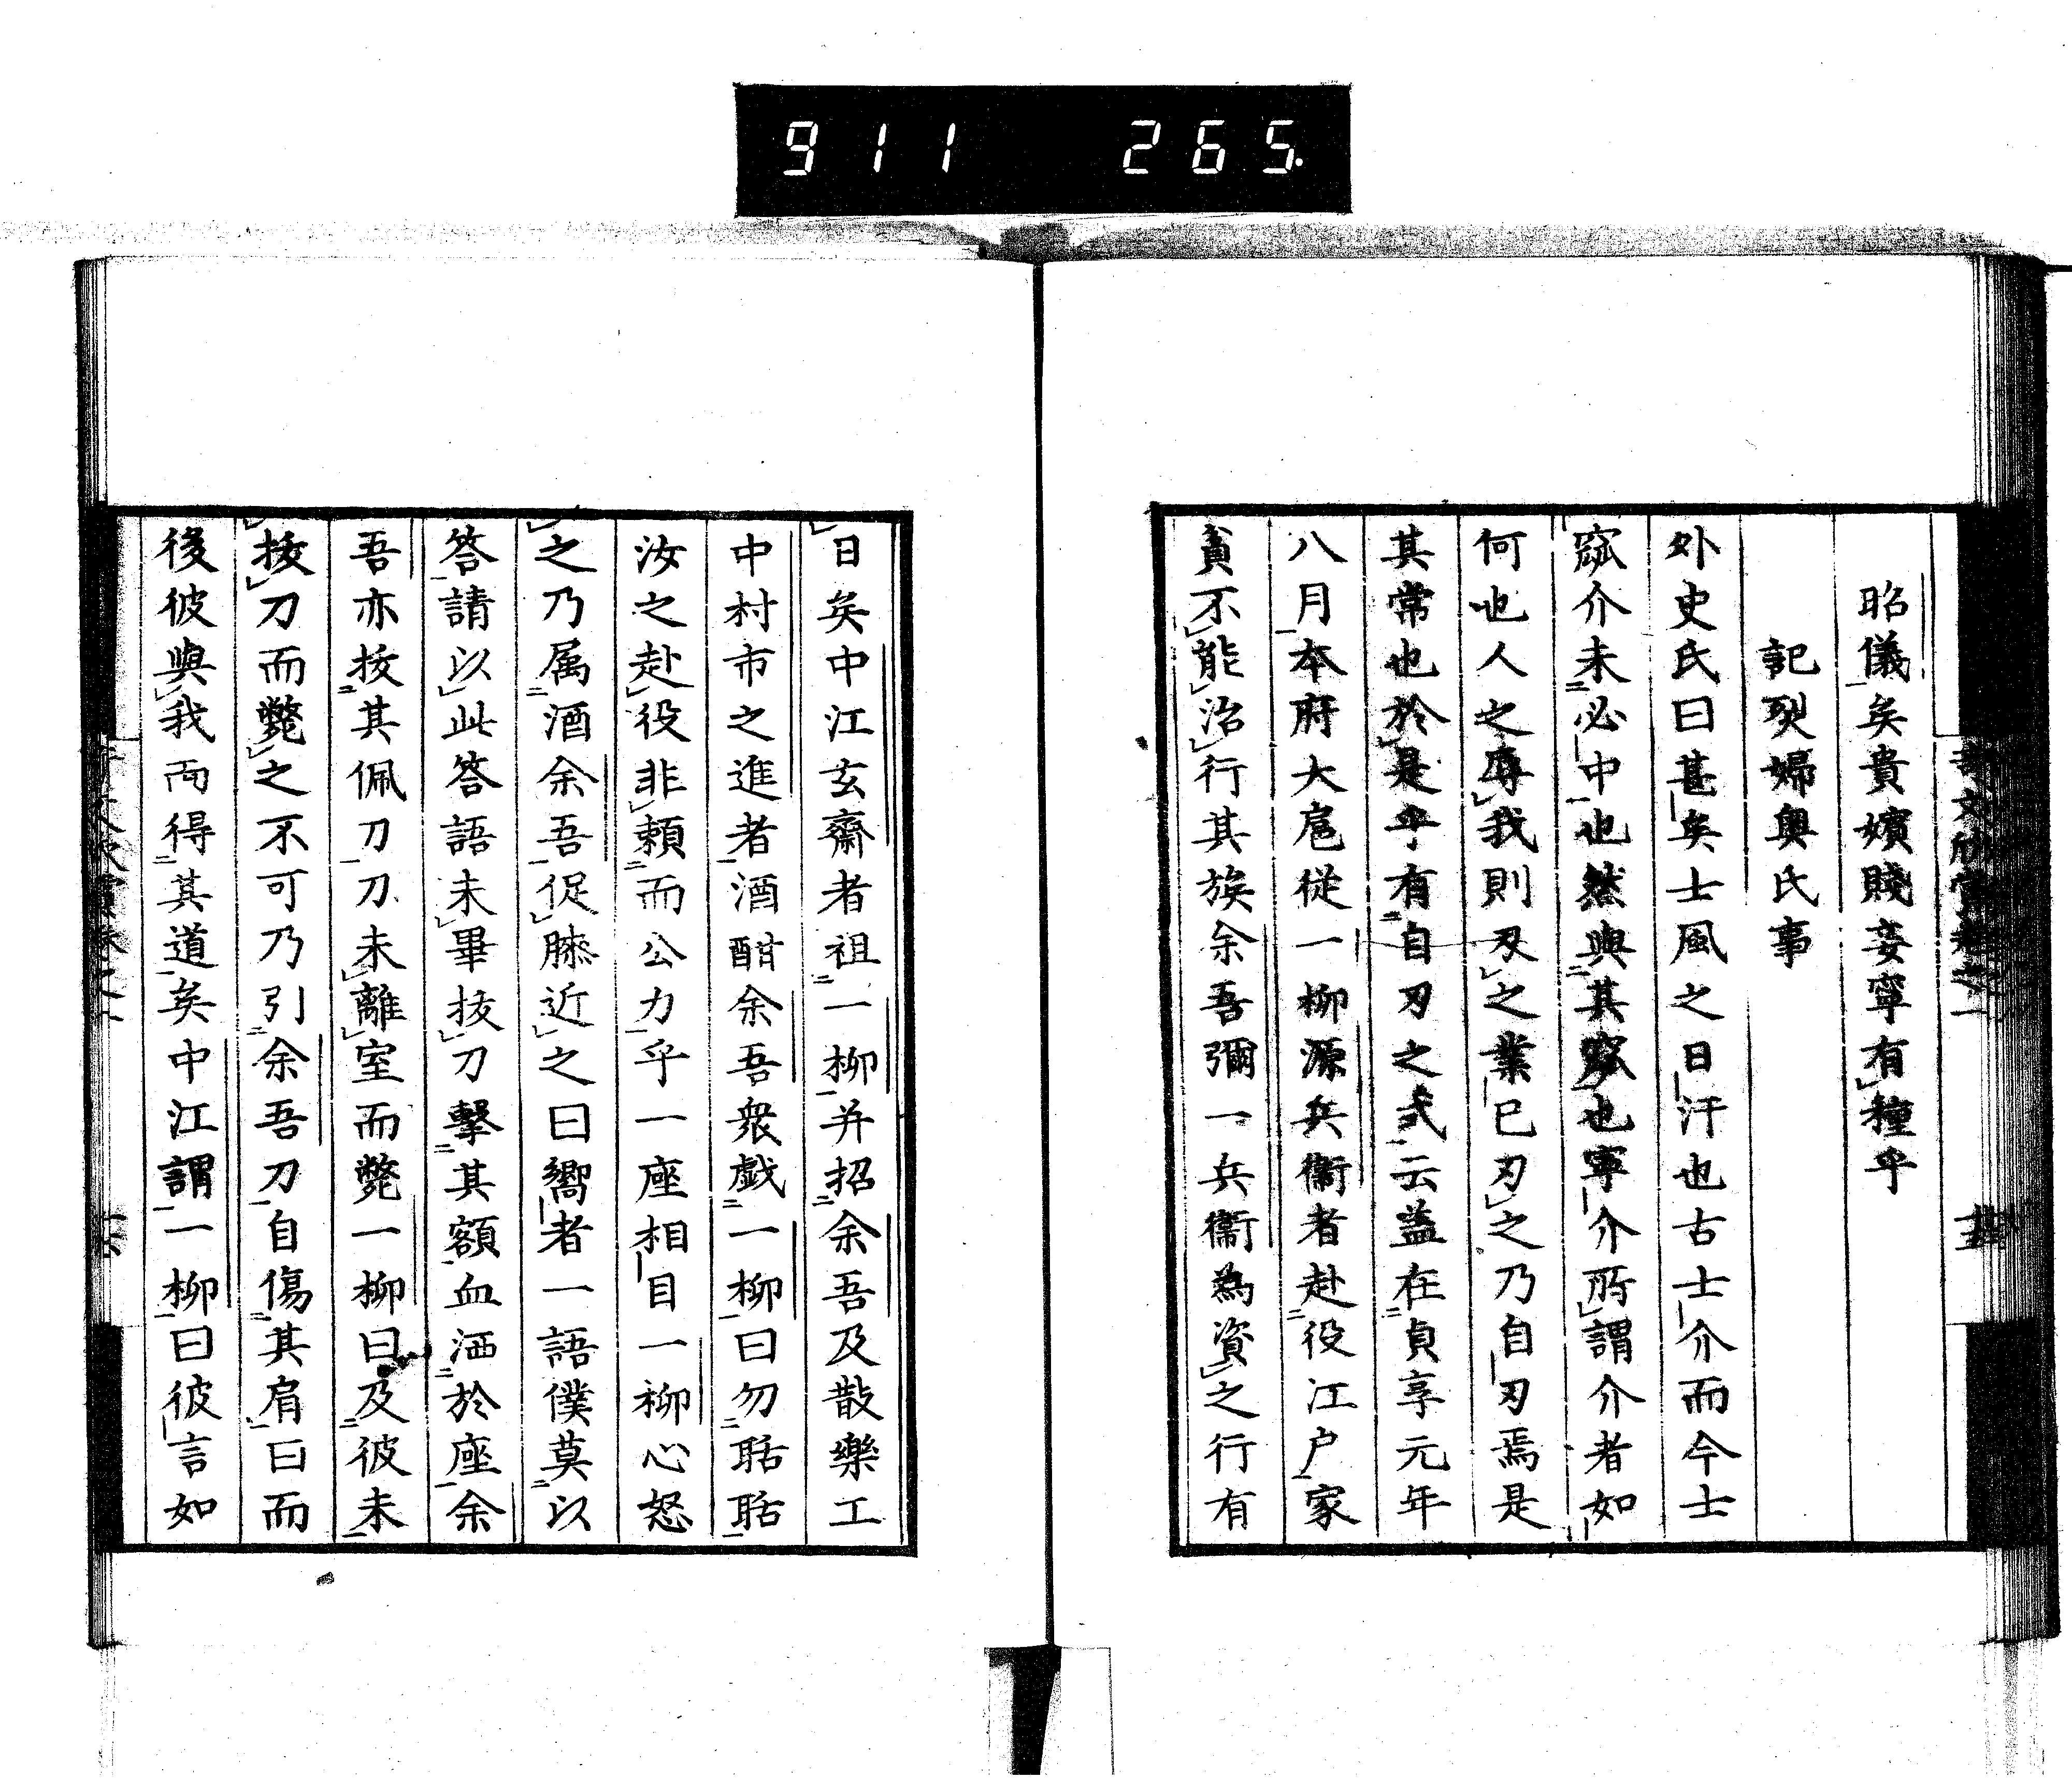 911 265.
昭儀矣貴嬪賤妾寧有種乎
記烈婦奥氏事
外史氏曰甚矣士風之日汗也古士介而今士
窳介未必中也然與其窳也寧介所謂介者如
何也人之辱我則刃之業已刃之乃自刃焉是
其常也於是乎有自刃之弍云盖在貞享元年
八月本府大扈從一柳源兵衞者赴役江户家
貧不能治行其族余吾彌一兵衞為資之行有
日矣中江玄齋者祖一柳并招余吾及散樂工
中村市之進者酒酣余吾衆戯一柳曰勿聒聒
汝之赴役非頼而公力乎一座相目一柳心怒
之乃属酒余吾促膝近之曰嚮者一語僕莫以
答請以此答語未畢抜刀擊其額血洒於座余
吾亦抜其佩刀刀未離室而斃一柳曰及彼未
抜刀而斃之不可乃引余吾刀自傷其肩曰而
後彼與我両得其道矣中江謂一柳曰彼言如